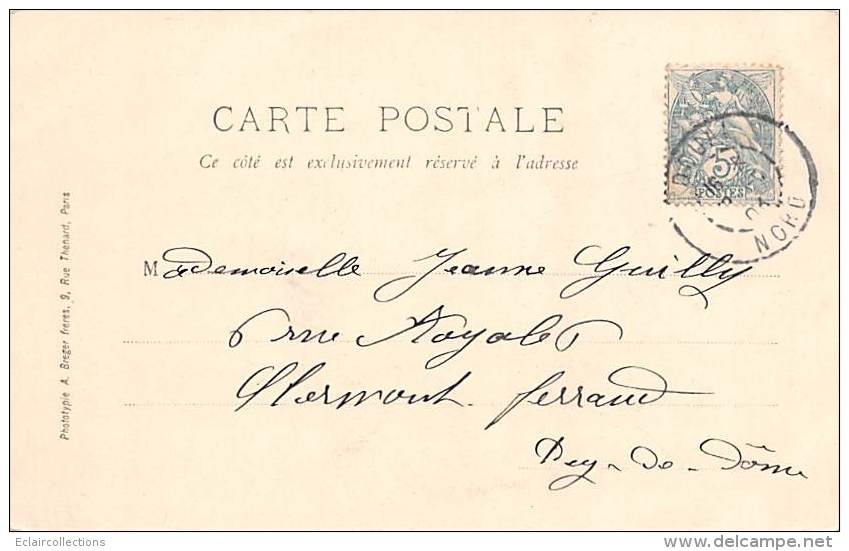 CARTE POSTALE
Ce côté est exclusivement réservé à l'adresse
5
POSTES
NORD
Mademoiselle Jeanne Guilly
6 rue Royale 6
Clermont-ferrand
Puy-de-Dôme
Phototypie A. Breger freres, 9, Rue Thenard, Paris
Eclaircollections
delcampe.net